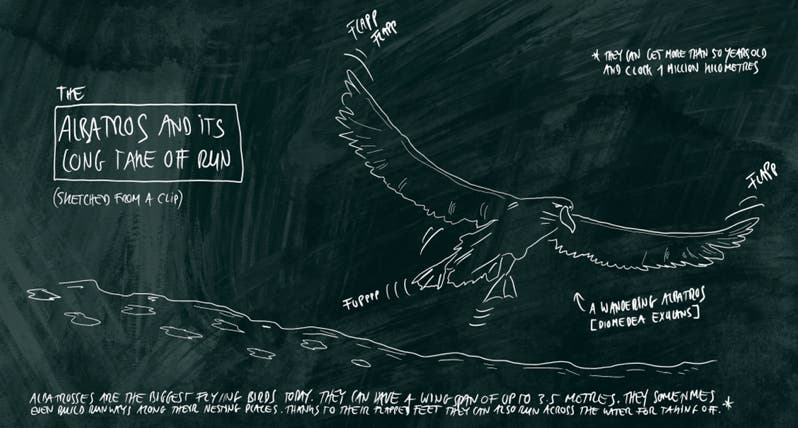 FLAPP
FLAPP
* THEY CAN GET MORE THAN 50 YEARS OLD
AND CLOCK 1 MILLION KILOMETRES
THE
ALBATROS AND ITS
LONG TAKE OFF RUN
(SKETCHED FROM A CLIP)
FLAPP
FUPPPP
A WANDERING ALBATROS
[DIOMEDEA EXULANS]
ALBATROSSES ARE THE BIGGEST FLYING BIRDS TODAY. THEY CAN HAVE A WING SPAN OF UP TO 3.5 METRES. THEY SOMETIMES
EVEN BUILD RUNWAYS ALONG THEIR NESTING PLACES. THANKS TO THEIR FLAPPED FEET THEY CAN ALSO RUN ACROSS THE WATER FOR TAKING OFF. *